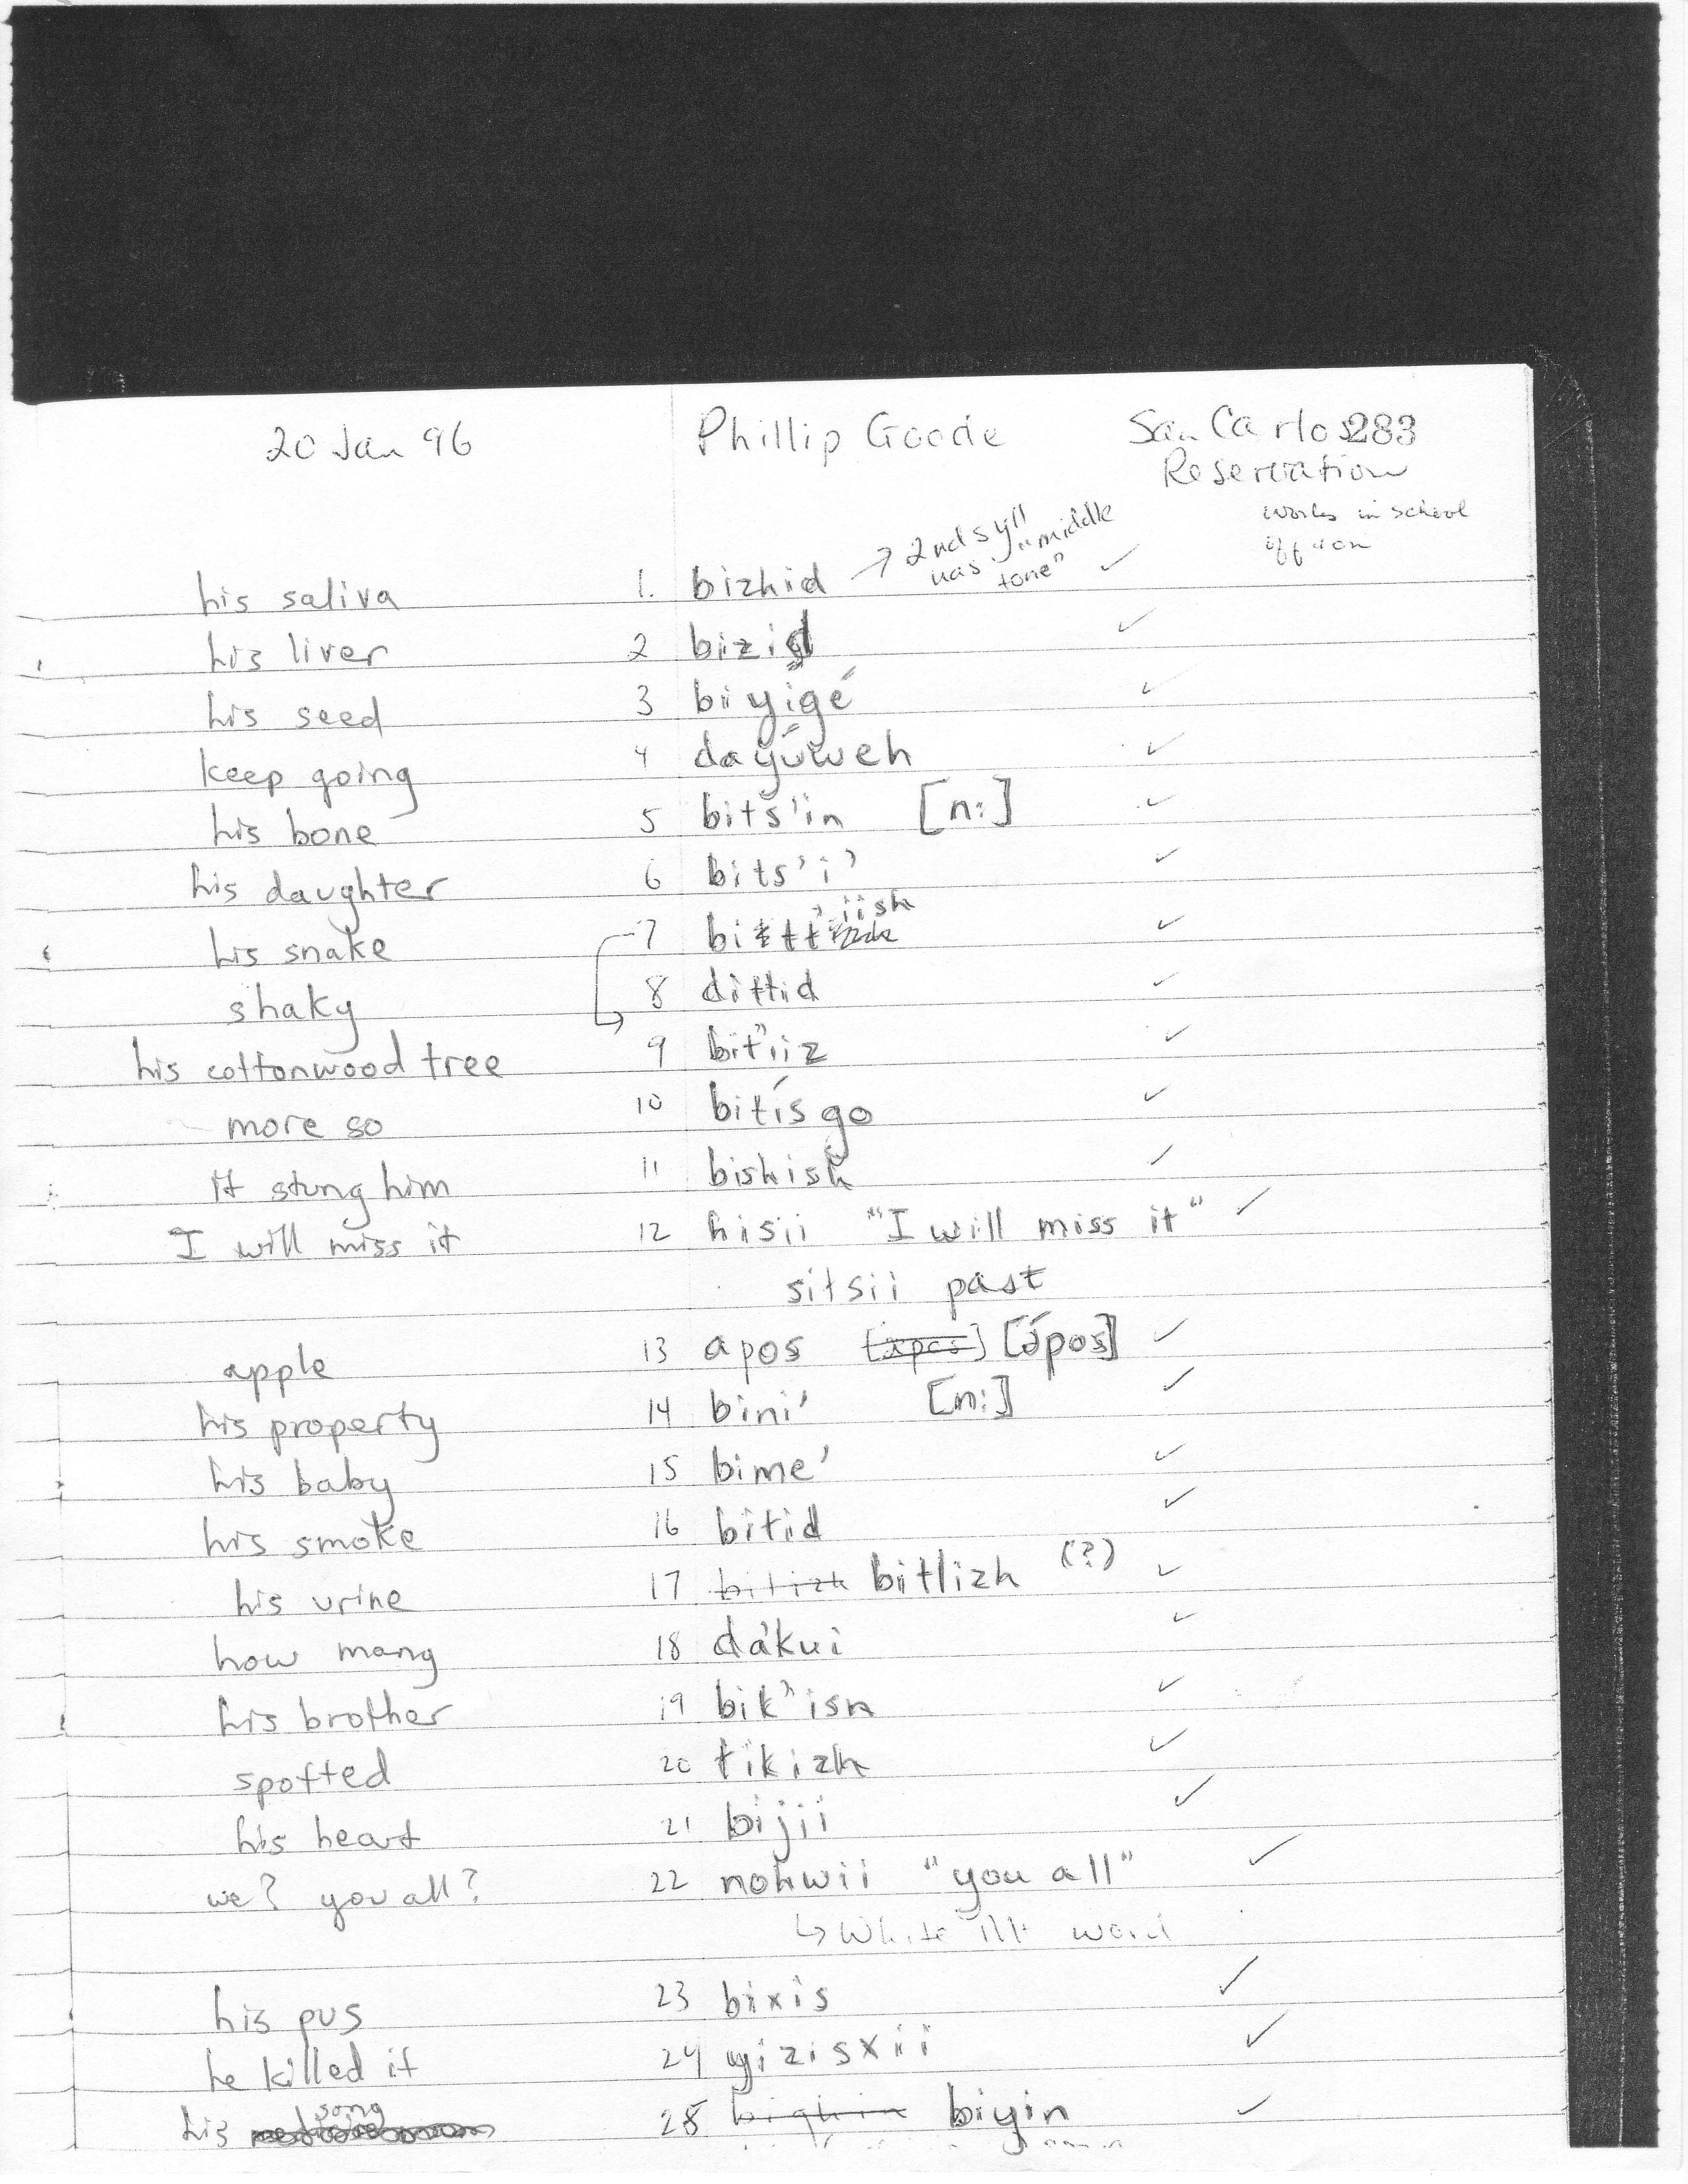 20 Jan 96 Phillip Goode San Carlos 283
Reservation
works in school
off
→ 2nd syll
has "middle
tone"
his saliva 1. bizhid ✓
his liver 2 bizid ✓
his seed 3 biyigé ✓
keep going 4 dayúweh ✓
his bone 5 bits'in [n:] ✓
his daughter 6 bits'i' ✓
his snake 7 'iish ✓
shaky 8 ditłid ✓
his cottonwood tree 9 bit'iiz ✓
more so 10 bitísgo ✓
it stung him 11 bishish ✓
I will miss it 12 hisii "I will miss it" ✓
sitsii past
apple 13 apos [ápos] ✓
his property 14 bini' [n:] ✓
his baby 15 bime' ✓
his smoke 16 bitid ✓
his urine 17 bitlizh (?) ✓
how many 18 dákui ✓
his brother 19 bik'isn ✓
spotted 20 łikizh ✓
his heart 21 bijii ✓
we? you all? 22 nohwii "you all" ✓
↳ White Mt word
his pus 23 bixis ✓
he killed it 24 yizisxii ✓
his song 25 bighin biyin ✓